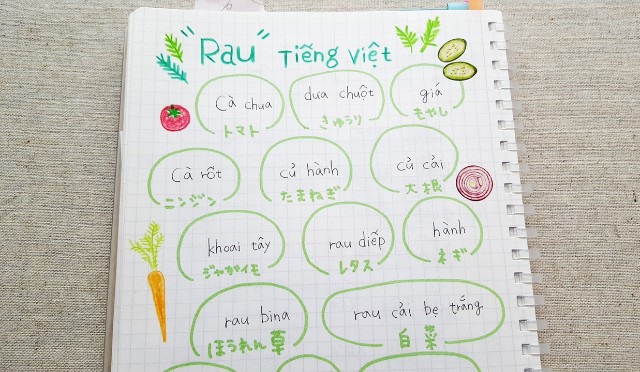 "Rau" Tiếng Việt
Cà chua
トマト
dưa chuột
きゅうり
giá
もやし
Cà rốt
ニンジン
củ hành
たまねぎ
củ cải
大根
khoai tây
ジャガイモ
rau diếp
レタス
hành
ネギ
rau bina
ほうれん草
rau cải bẹ trắng
白菜